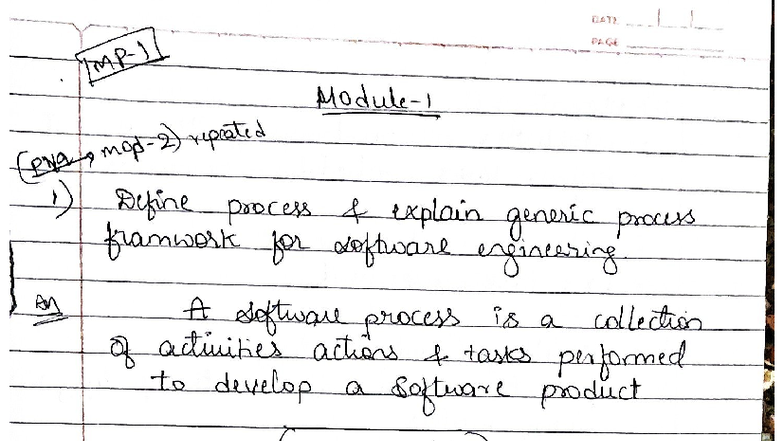 DATE
PAGE
IMP-1
Module-1
(PYQ → mqp-2) repeated
1) Define process & explain generic process
framwork for software engineering
An A software process is a collection
of activities actions & tasks performed
to develop a software product